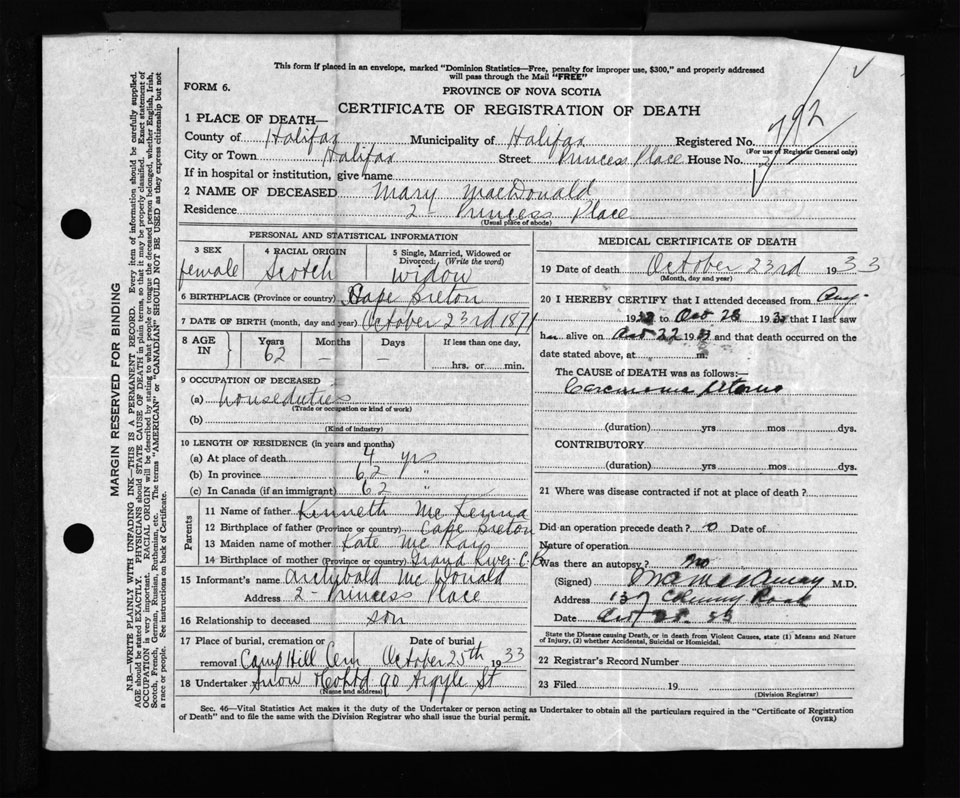 This form if placed in an envelope, marked "Dominion Statistics—Free, penalty for improper use, $300," and properly addressed
will pass through the Mail "FREE"
FORM 6.
PROVINCE OF NOVA SCOTIA
CERTIFICATE OF REGISTRATION OF DEATH
792
1 PLACE OF DEATH—
County of Halifax Municipality of Halifax Registered No.
(For use of Registrar General only)
City or Town Halifax Street Princess Place House No. 2
If in hospital or institution, give name
2 NAME OF DECEASED Mary MacDonald
Residence 2 Princess Place
(Usual place of abode)
PERSONAL AND STATISTICAL INFORMATION
3 SEX 4 RACIAL ORIGIN 5 Single, Married, Widowed or
Divorced: (Write the word)
female Scotch widow
6 BIRTHPLACE (Province or country) Cape Breton
7 DATE OF BIRTH (month, day and year) October 23rd 1871
8 AGE IN Years Months Days If less than one day,
62 — — hrs. or min.
9 OCCUPATION OF DECEASED
(a) houseduties
(Trade or occupation or kind of work)
(b)
(Kind of industry)
10 LENGTH OF RESIDENCE (in years and months)
(a) At place of death 4 yrs
(b) In province 62 "
(c) In Canada (if an immigrant) 62 "
Parents
11 Name of father Kenneth McKenna
12 Birthplace of father (Province or country) Cape Breton
13 Maiden name of mother Kate McKay
14 Birthplace of mother (Province or country) Grand River C.B.
15 Informant's name Archibald McDonald
Address 2 - Princess Place
16 Relationship to deceased son
17 Place of burial, cremation or Date of burial
removal Camp Hill Cem October 25th 1933
18 Undertaker Snow & Co Ltd 90 Argyle St
(Name and address)
MEDICAL CERTIFICATE OF DEATH
19 Date of death October 23rd 1933
(Month, day and year)
20 I HEREBY CERTIFY that I attended deceased from Aug.
19 to Oct 23 19 that I last saw
h alive on Oct 22 19 and that death occurred on the
date stated above, at m.
The CAUSE of DEATH was as follows:—
Carcinoma Uterus
(duration) yrs mos dys.
CONTRIBUTORY
(duration) yrs mos dys.
21 Where was disease contracted if not at place of death?
Did an operation precede death? o Date of
Nature of operation
Was there an autopsy? no
(Signed) M.D.
Address 137 Road
Date Oct
State the Disease causing Death, or in death from Violent Causes, state (1) Means and Nature
of Injury, (2) whether Accidental, Suicidal or Homicidal.
22 Registrar's Record Number
23 Filed 19
(Division Registrar)
Sec. 46—Vital Statistics Act makes it the duty of the Undertaker or person acting as Undertaker to obtain all the particulars required in the "Certificate of Registration
of Death" and to file the same with the Division Registrar who shall issue the burial permit.
(OVER)
MARGIN RESERVED FOR BINDING
N.B.—WRITE PLAINLY WITH UNFADING INK—THIS IS A PERMANENT RECORD. Every item of information should be carefully supplied.
AGE should be stated EXACTLY. PHYSICIANS should STATE CAUSE OF DEATH in plain terms, so that it may be properly classified. Exact statement of
OCCUPATION is very important. RACIAL ORIGIN will be described by stating to what people or tongue the deceased person belonged, whether English, Irish,
Scotch, French, German, Russian, Ruthenian, etc. The terms "AMERICAN" or "CANADIAN" SHOULD NOT BE USED as they express citizenship but not
a race or people. See instructions on back of Certificate.